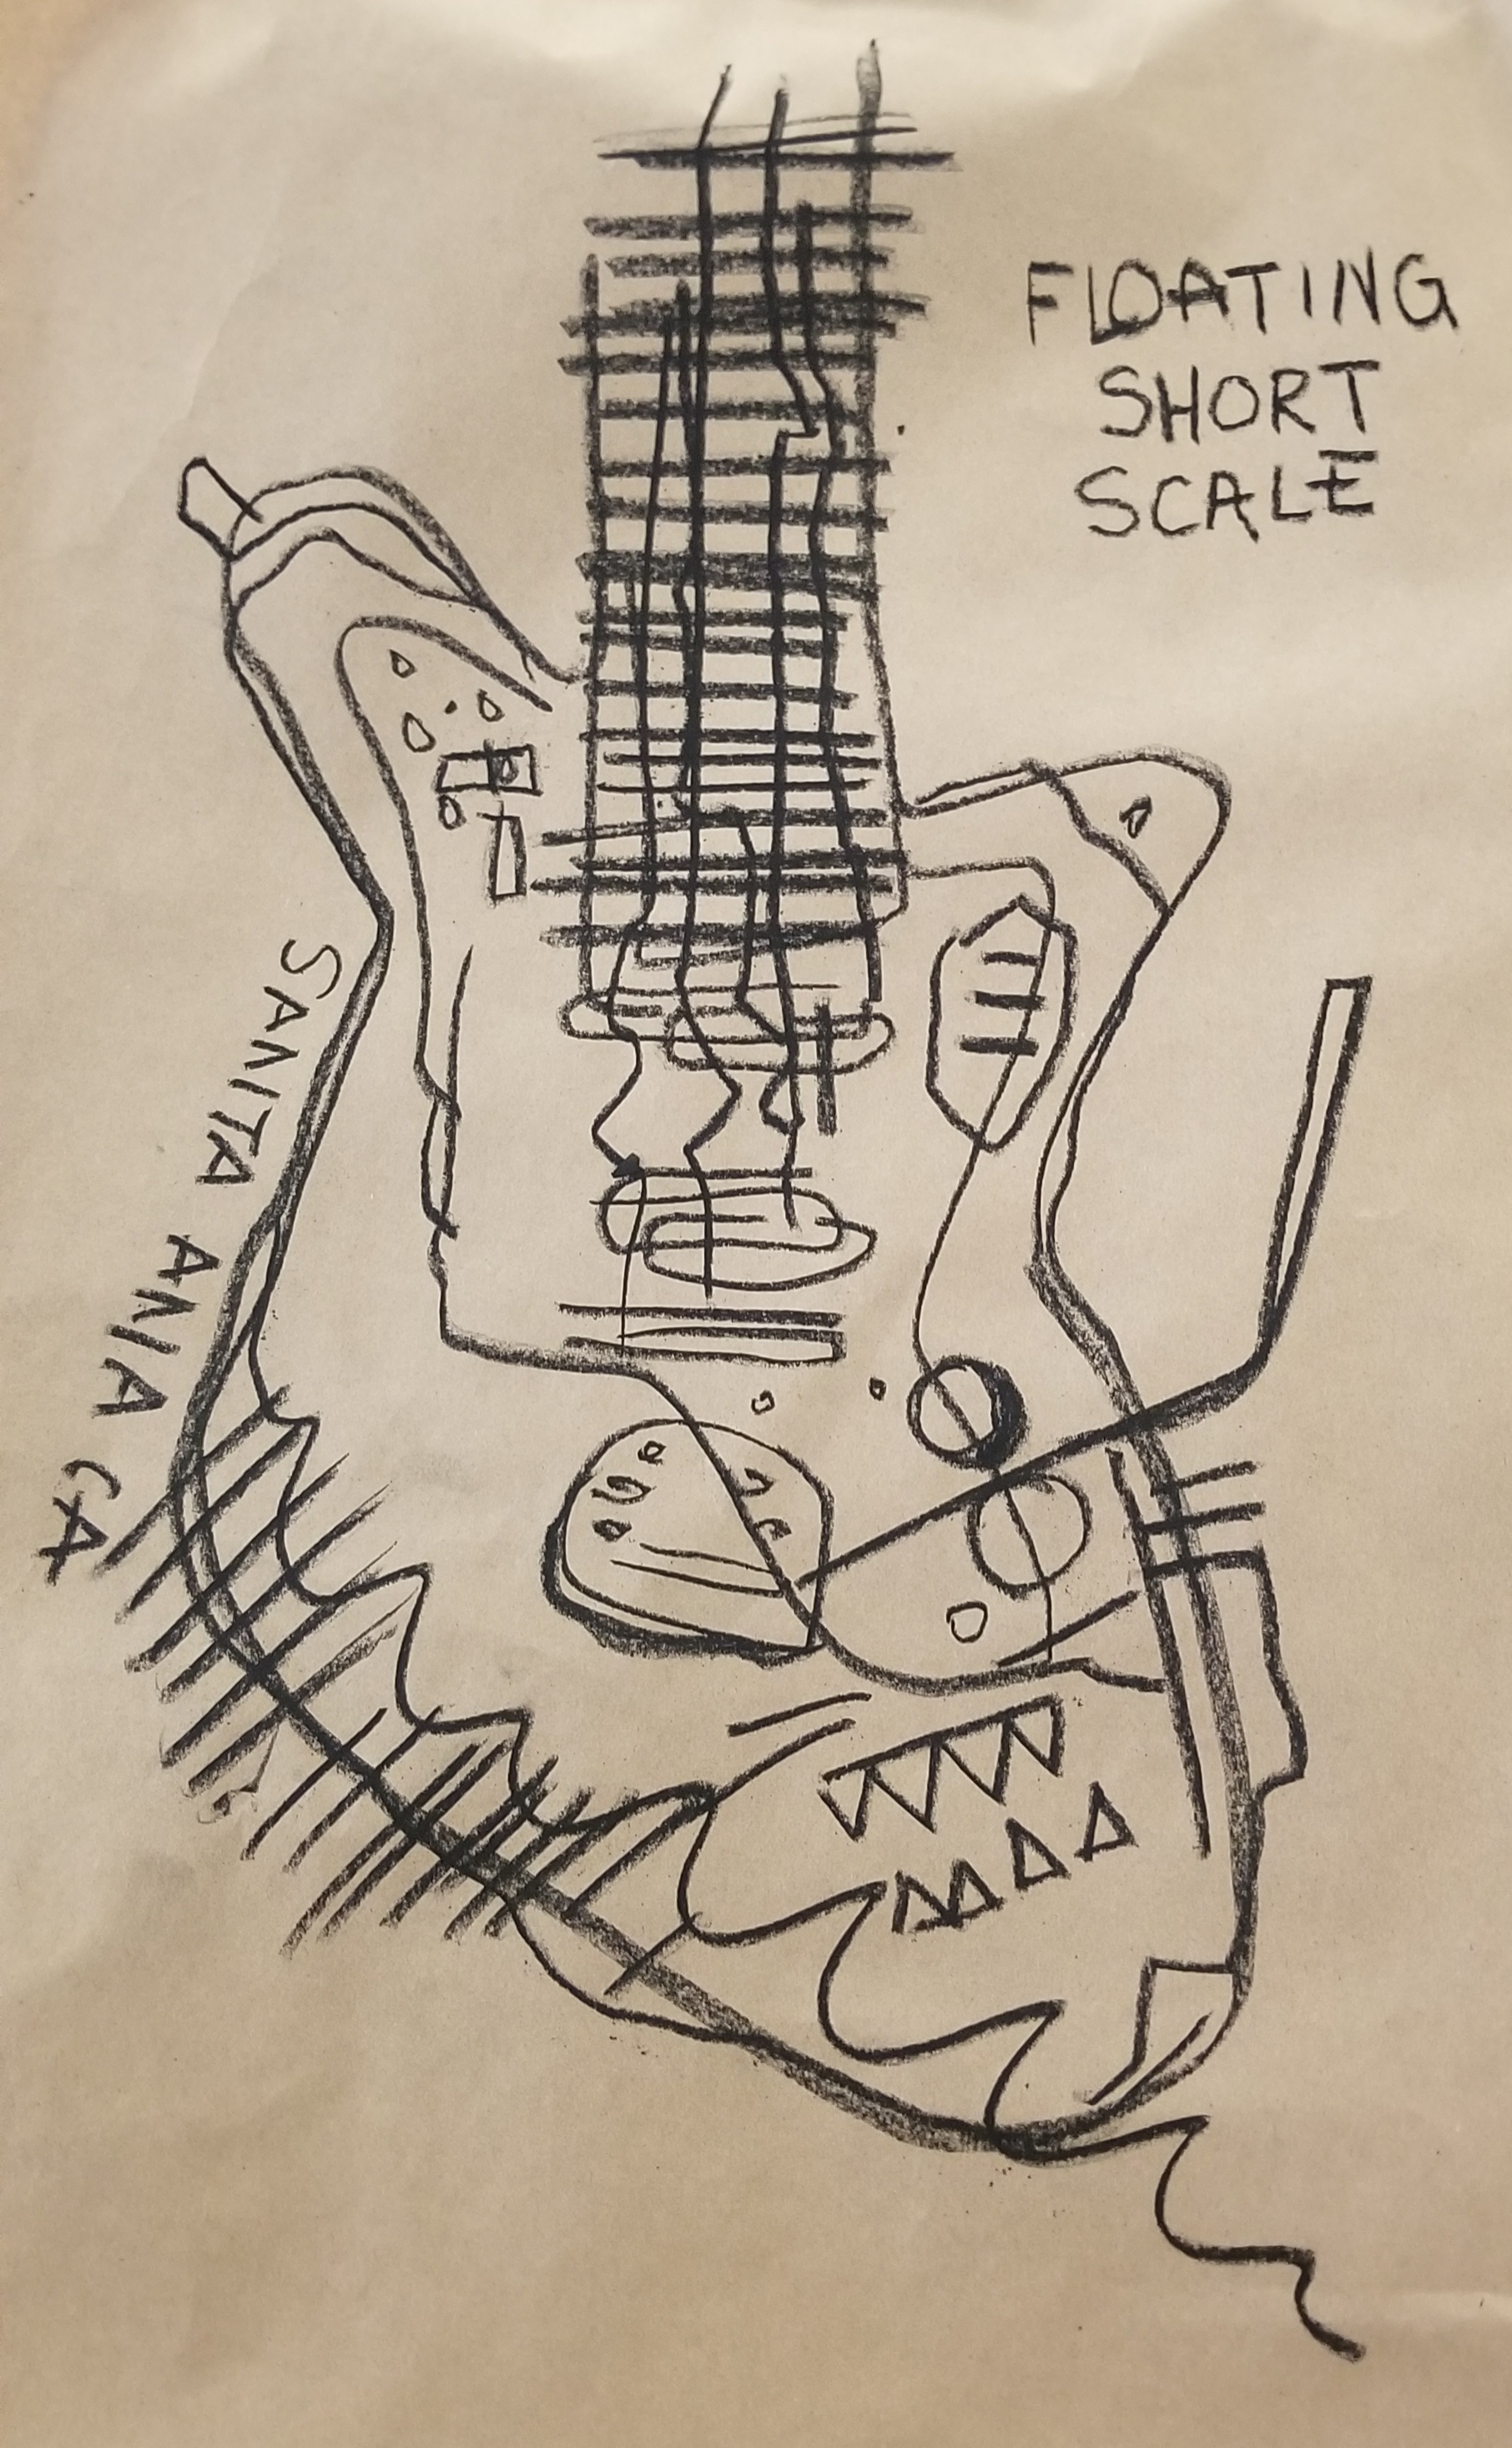 FLOATING
SHORT
SCALE
SANTA ANA CA